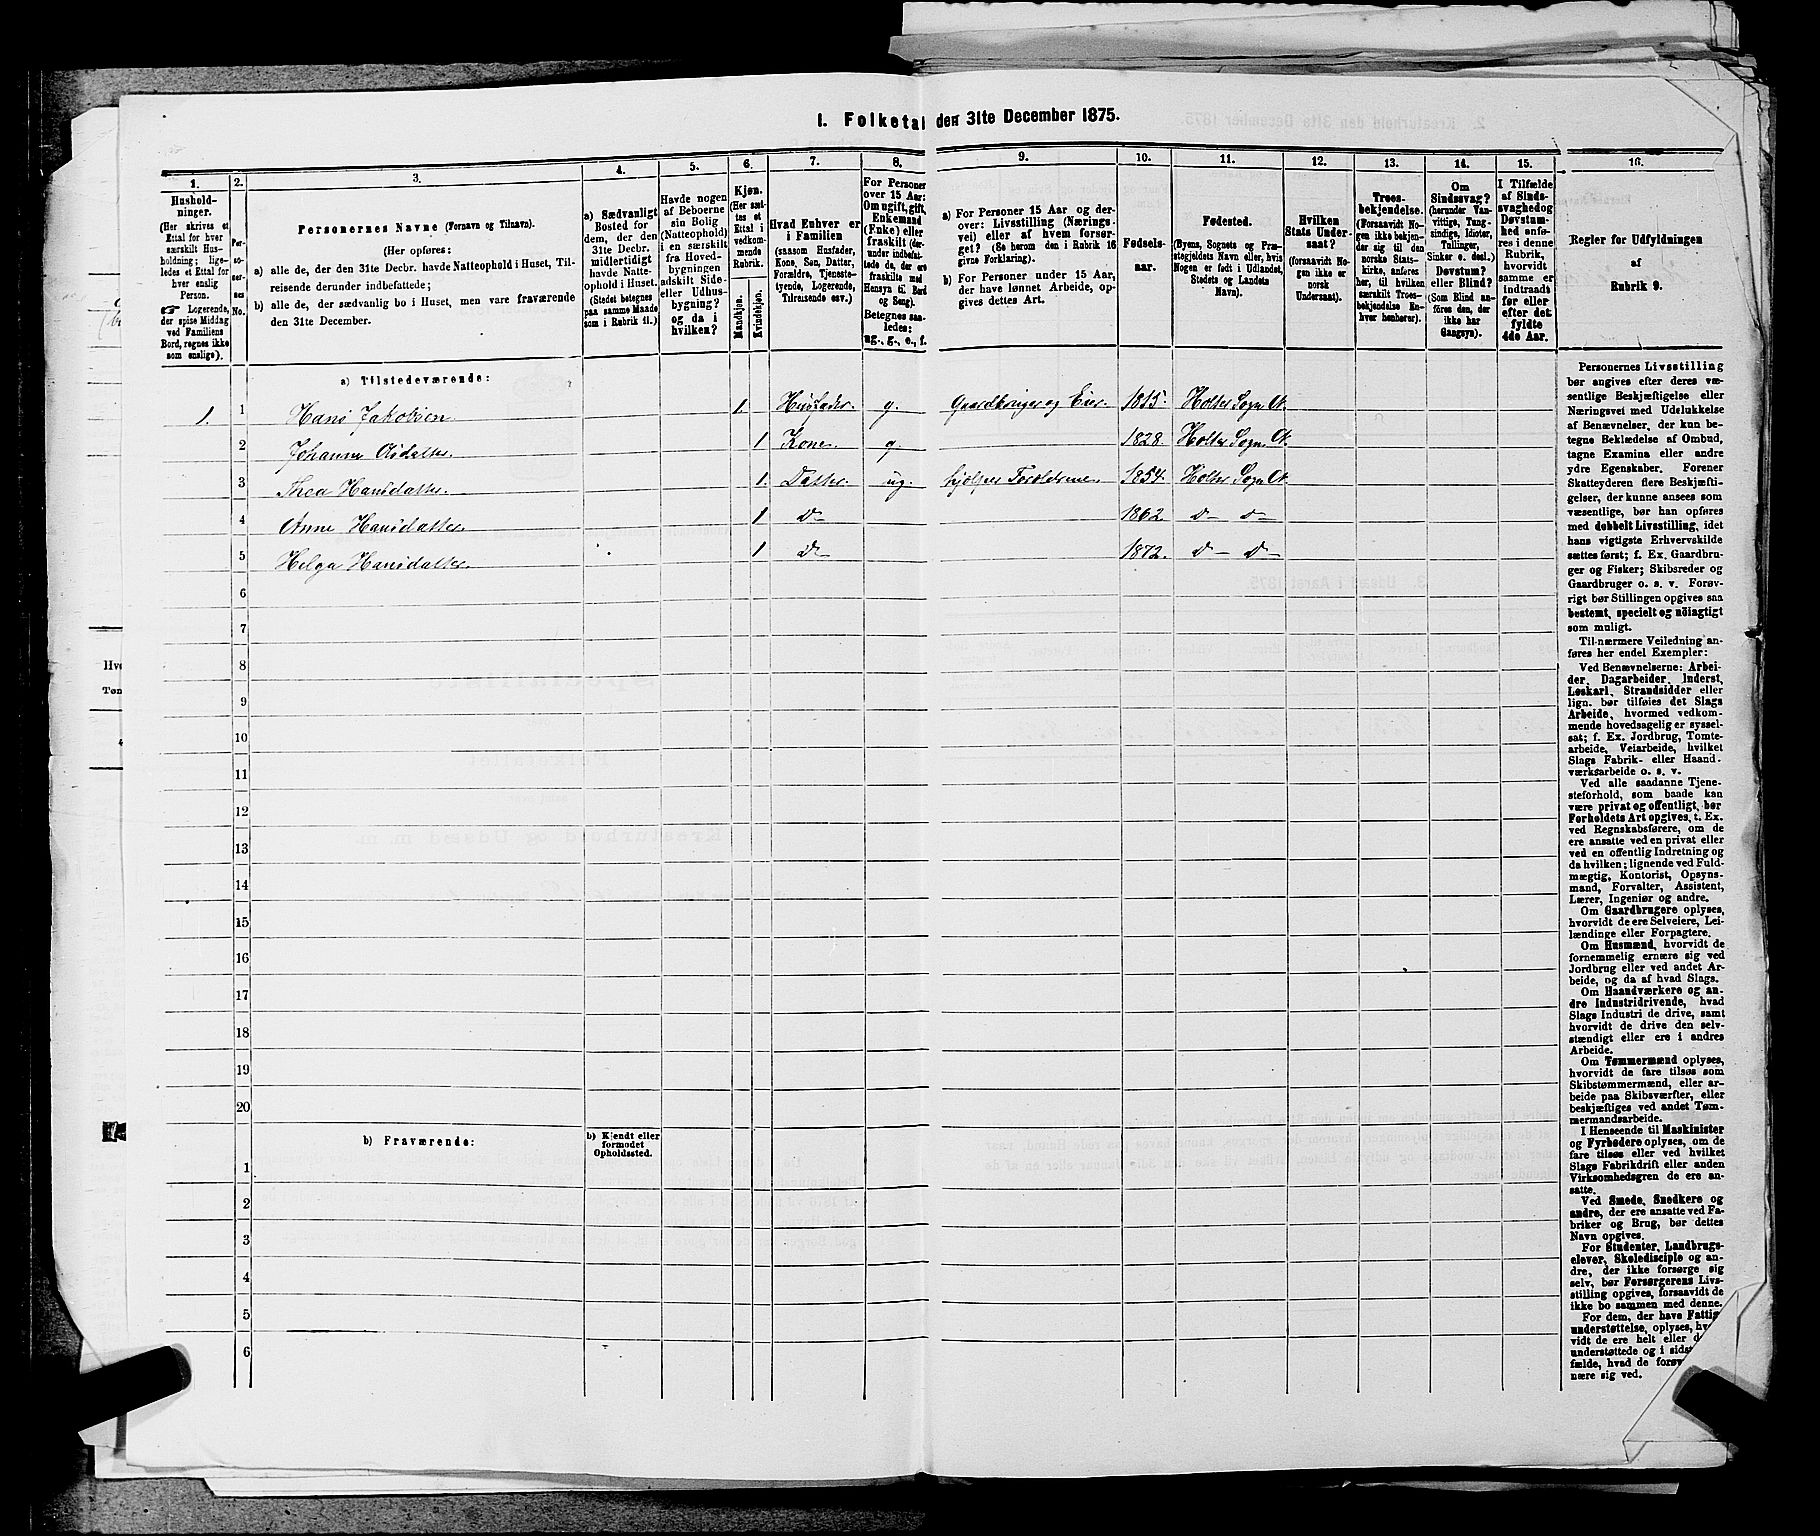 1. Folketal den 31te December 1875.
1. 2. 3. 4. 5. 6. 7. 8. 9. 10. 11. 12. 13. 14. 15. 16.
Husholdninger.
(Her skrives et
Ettal for hver
særskilt Husholdning; ligeledes et Ettal for
hver enslig
Person.
Logerende,
der spise Middag
ved Familiens
Bord, regnes ikke
som enslige).
Personernes No.
Personernes Navne (Fornavn og Tilnavn).
(Her opføres:
a) alle de, der den 31te Decbr. havde Natteophold i Huset, Tilreisende derunder indbefattede;
b) alle de, der sædvanlig bo i Huset, men vare fraværende
den 31te December.
a) Sædvanligt
Bosted for
dem, der den
31te Decbr.
midlertidigt
havde Natteophold i Huset.
(Stedet betegnes
paa samme Maade
som i Rubrik 11.)
Havde nogen
af Beboerne
sin Bolig
(Natteophold)
i en særskilt
fra Hovedbygningen
adskilt Side-
eller Udhusbygning?
og da i
hvilken?
Kjøn.
(Her sættes et
Ettal i
vedkommende
Rubrik.
Mandkjøn.
Kvindekjøn.
Hvad Enhver er
i Familien
(saasom Husfader,
Kone, Søn, Datter,
Forældre, Tjenestetyende, Logerende,
Tilreisende osv.)
For Personer
over 15 Aar:
Om ugift, gift,
Enkemand
(Enke) eller
fraskilt (derunder indbefattede de, der ere
fraskilte med
Hensyn til Bord
og Seng).
Betegnes saaledes:
ug., g., e., f.
a) For Personer 15 Aar og derover: Livsstilling (Næringsvei) eller af hvem forsørget? (Se herom den i Rubrik 16
givne Forklaring).
b) For Personer under 15 Aar,
der have lønnet Arbeide, opgives dettes Art.
Fødselsaar.
Fødested.
(Byens, Sognets og Præstegjeldets Navn eller, hvis
Nogen er født i Udlandet,
Stedets og Landets
Navn).
Hvilken
Stats Undersaat?
(forsaavidt Nogen ikke er
norsk
Undersaat).
Troesbekjendelse.
(Forsaavidt Nogen ikke bekjender sig til den
norske Statskirke, anføres
her, til hvilken
særskilt Troesbekjendelse Enhver henhører).
Om
Sindssvag?
(herunder Vanvittige, Tungsindige, Idioter,
Tullinger,
Sinker o. desl.)
Døvstum?
eller Blind?
(Som Blind anføres den, der
ikke har
Gangsyn).
I Tilfælde
af Sindssvaghed og
Døvstumhed anføres i denne
Rubrik,
hvorvidt
samme er
indtraadt
før eller
efter det
fyldte
4de Aar.
Regler for Udfyldningen
af
Rubrik 9.
a) Tilstedeværende:
1. 1 Hans Jakobsen 1. Husfader. g. Gaardbruger og Eier. 1815. Holter Sogn
2 Johanne 1 Kone. g. 1828. Holter Sogn
3 Thea Hansdatter. 1. Datter. ug. hjelper Forældrene 1854. Holter Sogn
4 Anne Hansdatter 1 D- 1862. D- D-
5 Helga Hansdatter 1 D- 1872. D- D-
6
7
8
9
10
11
12
13
14
15
16
17
18
19
20
b) Fraværende:
b) Kjendt eller
formodet
Opholdssted.
1
2
3
4
5
6
Personernes Livsstilling
bør angives efter deres væsentlige Beskjæftigelse eller
Næringsvei med Udelukkelse
af Benævnelser, der kun betegne Beklædelse af Ombud,
tagne Examina eller andre
ydre Egenskaber. Forener
Skatteyderen flere Beskjæftigelser, der kunne ansees som
væsentlige, bør han opføres
med dobbelt Livsstilling, idet
hans vigtigste Erhvervskilde
sættes først; f. Ex. Gaardbruger og Fisker; Skibsreder og
Gaardbruger o. s. v. Forøvrigt bør Stillingen opgives saa
bestemt, specielt og nöiagtigt
som muligt.
Til nærmere Veiledning anføres her endel Exempler:
Ved Benævnelserne: Arbeider, Dagarbeider, Inderst,
Løskarl, Strandsidder eller
lign. bør tilføies det Slags
Arbeide, hvormed vedkommende hovedsagelig er sysselsat; f. Ex. Jordbrug, Tomtearbeide, Veiarbeide, hvilket
Slags Fabrik- eller Haandværksarbeide o. s. v.
Ved alle saadanne Tjenesteforhold, som baade kan
være privat og offentligt, bør
Forholdets Art opgives, t. Ex.
ved Regnskabsførere, om de
ere ansatte ved en privat eller
ved en offentlig Indretning og
da hvilken; lignende ved Fuldmægtig, Kontorist, Opsynsmand, Forvalter, Assistent,
Lærer, Ingeniør og andre.
Om Gaardbrugere oplyses,
hvorvidt de ere Selveiere, Leilændinge eller Forpagtere.
Om Husmænd, hvorvidt de
fornemmelig ernære sig ved
Jordbrug eller ved andet Arbeide, og da af hvad Slags.
Om Haandværkere og andre Industridrivende, hvad
Slags Industri de drive, samt
hvorvidt de drive den selvstændigt eller ere i andres
Arbeide.
Om Tømmermænd oplyses,
hvorvidt de fare tilsøs som
Skibstømmermænd, eller arbeide paa Skibsværfter, eller
beskjæftiges ved andet Tømmermandsarbeide.
I Henseende til Maskinister
og Fyrbødere oplyses, om de
fare tilsøs eller ved hvilket
Slags Fabrikdrift eller anden
Virksomhedsgren de ere ansatte.
Ved Smede, Snedkere og
andre, der ere ansatte ved Fabriker og Brug, bør dettes
Navn opgives.
For Studenter, Landbrugselever, Skoledisciple og andre, der ikke forsørge sig
selv, bør Forsørgerens Livsstilling opgives, forsaavidt de
ikke bo sammen med denne.
For dem, der have Fattigunderstøttelse, oplyses,
vidt de ere helt eller
understøttede og i
fælde, hvad de
nære sig ved.